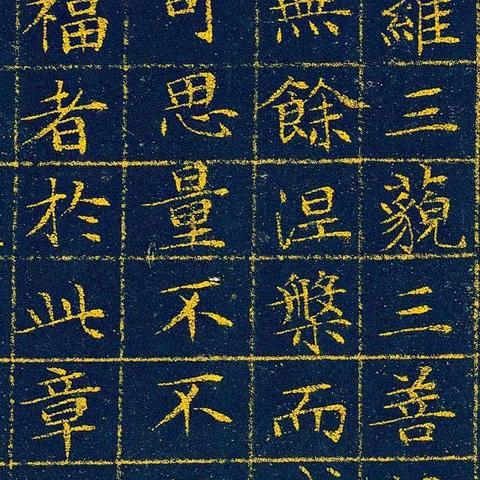 羅三藐三菩
無餘涅槃而
可思量不不
福者於此章